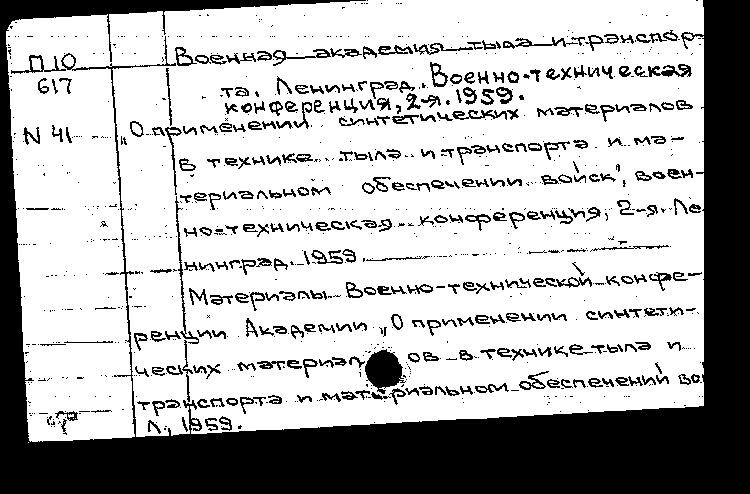 П10
617
N 41
Военная академия тыла и транспор-
та. Ленинград. Военно-техническая
конференция, 2-я. 1959.
„О применении синтетических материалов
в технике тыла и транспорта и ма-
териальном обеспечении войск", воен-
но-техническая конференция, 2-я. Ле
нинград. 1959.
Материалы Военно-технической конфе-
ренции Академии „О применении синтети-
ческих материалов в технике тыла и
транспорта и материальном обеспечений во
Л., 1959.